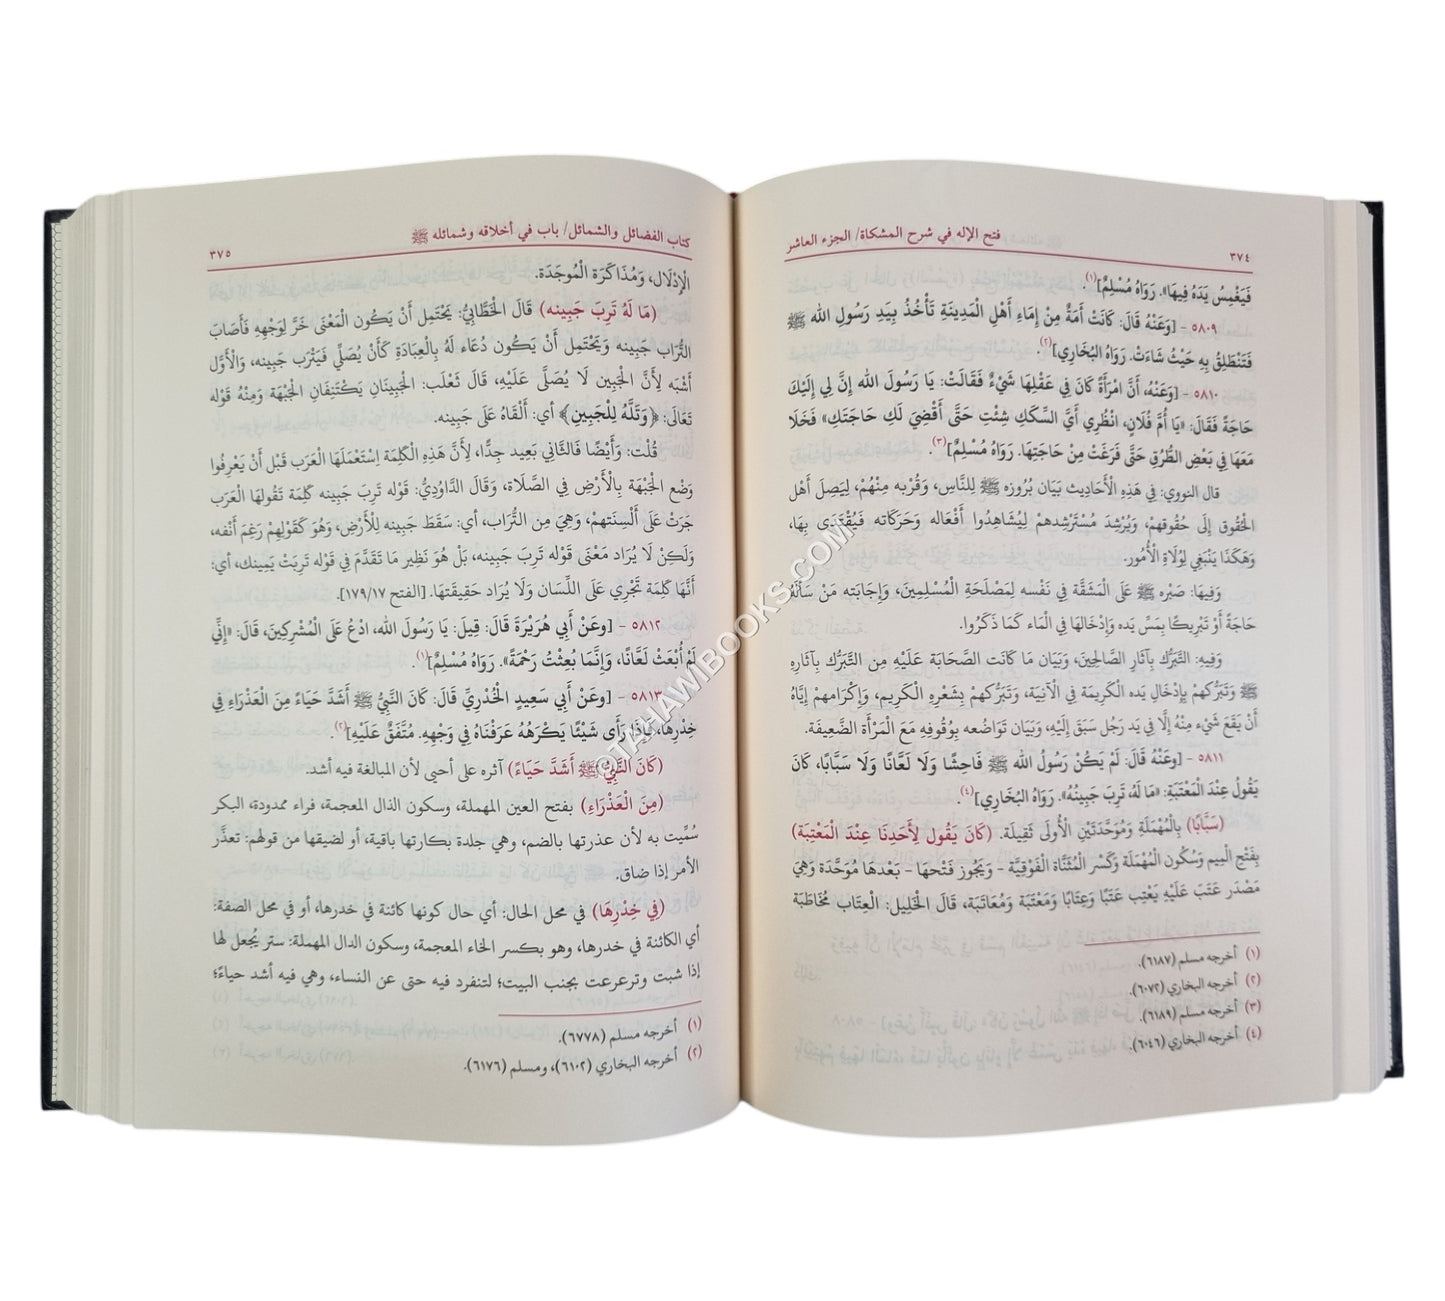 ٣٧٤
فتح الإله في شرح المشكاة/ الجزء العاشر
فَيَغْمِسُ يَدَهُ فِيهَا». رَوَاهُ مُسْلِمٌ](١).
٥٨٠٩ - [وَعَنْهُ قَالَ: كَانَتْ أَمَةٌ مِنْ إِمَاءِ أَهْلِ الْمَدِينَةِ تَأْخُذُ بِيَدِ رَسُولِ الله ﷺ
فَتَنْطَلِقُ بِهِ حَيْثُ شَاءَتْ. رَوَاهُ البُخَارِي](٢).
٥٨١٠ - [وَعَنْهُ، أَنَّ امْرَأَةً كَانَ فِي عَقْلِهَا شَيْءٌ فَقَالَتْ: يَا رَسُولَ الله إِنَّ لِي إِلَيْكَ
حَاجَةً فَقَالَ: «يَا أُمَّ فُلَانٍ، انْظُرِي أَيَّ السِّكَكِ شِئْتِ حَتَّى أَقْضِيَ لَكِ حَاجَتَكِ» فَخَلَا
مَعَهَا فِي بَعْضِ الطُّرُقِ حَتَّى فَرَغَتْ مِنْ حَاجَتِهَا. رَوَاهُ مُسْلِمٌ](٣).
قال النووي: فِي هَذِهِ الْأَحَادِيث بَيَان بُرُوزه ﷺ لِلنَّاسِ، وَقُرْبه مِنْهُمْ، لِيَصِلَ أَهْل
الْحُقُوق إِلَى حُقُوقهمْ، وَيُرْشِد مُسْتَرْشِدهمْ لِيُشَاهِدُوا أَفْعَاله وَحَرَكَاته فَيُقْتَدَى بِهَا،
وَهَكَذَا يَنْبَغِي لِوُلَاةِ الْأُمُور.
وَفِيهَا: صَبْره ﷺ عَلَى الْمَشَقَّة فِي نَفْسه لِمَصْلَحَةِ الْمُسْلِمِينَ، وَإِجَابَته مَنْ سَأَلَهُ
حَاجَةً أَوْ تَبْرِيكًا بِمَسِّ يَده وَإِدْخَالهَا فِي الْمَاء كَمَا ذَكَرُوا.
وَفِيهِ: التَّبَرُّك بِآثَارِ الصَّالِحِينَ، وَبَيَان مَا كَانَت الصَّحَابَة عَلَيْهِ مِن التَّبَرُّك بِآثَارِهِ
ﷺ وَتَبَرُّكهمْ بِإِدْخَالِ يَده الْكَرِيمَة فِي الْآنِيَة، وَتَبَرُّكهمْ بِشَعْرِهِ الْكَرِيم، وَإِكْرَامهمْ إِيَّاهُ
أَنْ يَقَعَ شَيْء مِنْهُ إِلَّا فِي يَد رَجُل سَبَقَ إِلَيْهِ، وَبَيَان تَوَاضُعه بِوُقُوفِهِ مَعَ الْمَرْأَة الضَّعِيفَة.
٥٨١١ - [وَعَنْهُ قَالَ: لَمْ يَكُنْ رَسُولُ الله ﷺ فَاحِشًا وَلَا لَعَّانًا وَلَا سَبَّابًا، كَانَ
يَقُولُ عِنْدَ الْمَعْتِبَةِ: «مَا لَهُ، تَرِبَ جَبِينُهُ». رَوَاهُ البُخَارِي](٤).
(سَبَّابًا) بِالْمُهْمَلَةِ وَمُوَحَّدَتَيْنِ الْأُولَى ثَقِيلَة. (كَانَ يَقُول لِأَحَدِنَا عِنْدَ الْمَعْتِبَة)
بِفَتْحِ الْمِيم وَسُكُون الْمُهْمَلَة وَكَسْر الْمُثَنَّاة الْفَوْقِيَّة - وَيَجُوز فَتْحهَا - بَعْدهَا مُوَحَّدَة وَهِيَ
مَصْدَر عَتَبَ عَلَيْهِ يَعْتِب عَتَبًا وَعِتَابًا وَمَعْتَبَة وَمُعَاتَبَة، قَالَ الْخَلِيل: الْعِتَاب مُخَاطَبَة
(١) أخرجه مسلم (٦١٨٧).
(٢) أخرجه البخاري (٦٠٧٢).
(٣) أخرجه مسلم (٦١٨٩).
(٤) أخرجه البخاري (٦٠٤٦).
كتاب الفضائل والشمائل/ باب في أخلاقه وشمائله ﷺ
٣٧٥
الْإِدْلَال، وَمُذَاكَرَة الْمُوجَدَة.
(مَا لَهُ تَرِبَ جَبِينه) قَالَ الْخَطَّابِيُّ: يَحْتَمِل أَنْ يَكُون الْمَعْنَى خَرَّ لِوَجْهِهِ فَأَصَابَ
التُّرَاب جَبِينه وَيَحْتَمِل أَنْ يَكُون دُعَاء لَهُ بِالْعِبَادَةِ كَأَنْ يُصَلِّي فَيَتْرَب جَبِينه، وَالْأَوَّل
أَشْبَه لِأَنَّ الْجَبِين لَا يُصَلَّى عَلَيْهِ، قَالَ ثَعْلَب: الْجَبِينَانِ يَكْتَنِفَانِ الْجَبْهَة وَمِنْهُ قَوْله
تَعَالَى: ﴿وَتَلَّهُ لِلْجَبِينِ﴾ أي: أَلْقَاهُ عَلَى جَبِينه.
قُلْت: وَأَيْضًا فَالثَّانِي بَعِيد جِدًّا، لِأَنَّ هَذِهِ الْكَلِمَة اِسْتَعْمَلَهَا الْعَرَب قَبْل أَنْ يَعْرِفُوا
وَضْع الْجَبْهَة بِالْأَرْضِ فِي الصَّلَاة، وَقَالَ الدَّاوُدِيُّ: قَوْله تَرِبَ جَبِينه كَلِمَة تَقُولهَا الْعَرَب
جَرَتْ عَلَى أَلْسِنَتهمْ، وَهِيَ مِن التُّرَاب، أي: سَقَطَ جَبِينه لِلْأَرْضِ، وَهُوَ كَقَوْلِهِمْ رَغِمَ أَنْفه،
وَلَكِنْ لَا يُرَاد مَعْنَى قَوْله تَرِبَ جَبِينه، بَلْ هُوَ نَظِير مَا تَقَدَّمَ فِي قَوْله تَرِبَتْ يَمِينك، أي:
أَنَّهَا كَلِمَة تَجْرِي عَلَى اللِّسَان وَلَا يُرَاد حَقِيقَتهَا. [الفتح ١٧٩/١٧].
٥٨١٢ - [وعَنْ أَبِي هُرَيْرَةَ قَالَ: قِيلَ: يَا رَسُولَ الله، ادْعُ عَلَى الْمُشْرِكِينَ، قَالَ: «إِنِّي
لَمْ أُبْعَثْ لَعَّانًا، وَإِنَّمَا بُعِثْتُ رَحْمَةً». رَوَاهُ مُسْلِمٌ](١).
٥٨١٣ - [وعَنْ أَبِي سَعِيدٍ الْخُدْرِيِّ قَالَ: كَانَ النَّبِيُّ ﷺ أَشَدَّ حَيَاءً مِنَ الْعَذْرَاءِ فِي
خِدْرِهَا، فَإِذَا رَأَى شَيْئًا يَكْرَهُهُ عَرَفْنَاهُ فِي وَجْهِهِ. مُتَّفَقٌ عَلَيْهِ](٢).
(كَانَ النَّبِيُّ ﷺ أَشَدَّ حَيَاءً) آثره على أحيى لأن المبالغة فيه أشد.
(مِنَ الْعَذْرَاءِ) بفتح العين المهملة، وسكون الذال المعجمة، فراء ممدودة، البكر
سُمِّيت به لأن عذرتها بالضم، وهي جلدة بكارتها باقية، أو لضيقها من قولهم: تعذَّر
الأمر إذا ضاق.
(فِي خِدْرِهَا) في محل الحال: أي حال كونها كائنة في خدرها، أو في محل الصفة:
أي الكائنة في خدرها، وهو بكسر الخاء المعجمة، وسكون الدال المهملة: ستر يُجعل لها
إذا شبت وترعرعت بجنب البيت؛ لتنفرد فيه حتى عن النساء، وهي فيه أشد حياءً؛
(١) أخرجه مسلم (٦٧٧٨).
(٢) أخرجه البخاري (٦١٠٢)، ومسلم (٦١٧٦).
©TAHAWIBOOKS.COM